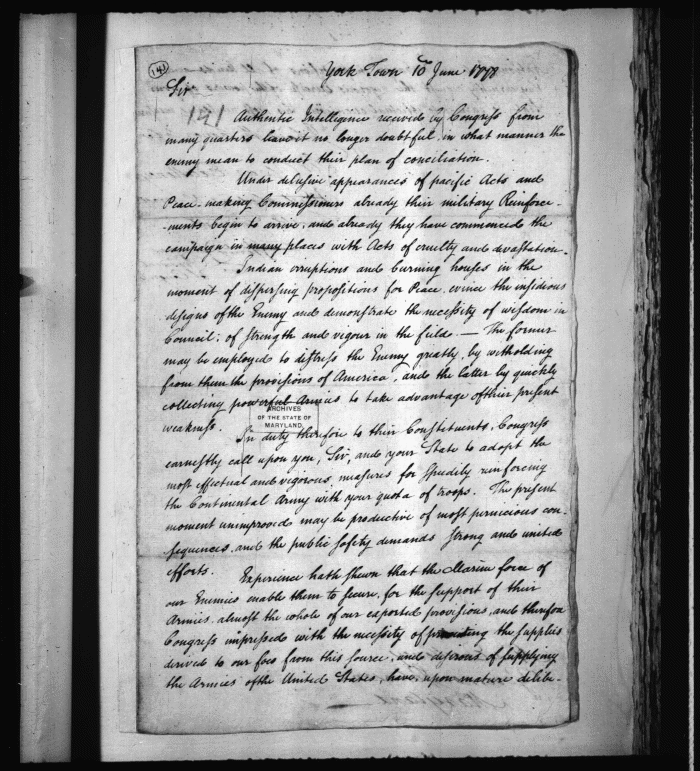 141
York Town 10th June 1778
Sir
141
Authentic Intelligence received by Congress from
many quarters leaves it no longer doubtful, in what manner the
enemy mean to conduct their plan of conciliation.
Under delusive appearances of pacific Acts and
Peace-making Commissioners already their military Reinforce-
-ments begin to arrive, and already they have commenced the
campaign in many places with Acts of cruelty and devastation.
Indian irruptions and burning houses in the
moment of dispersing propositions for Peace, evince the insidious
designs of the Enemy and demonstrate the necessity of wisdom in
Council; of strength and vigour in the field. — The former
may be employed to distress the Enemy greatly, by witholding
from them the provisions of America, and the latter by quickly
collecting powerful Armies to take advantage of their present
weakness.
ARCHIVES
OF THE STATE OF
MARYLAND
In duty therefore to their Constituents, Congress
earnestly call upon you, Sir, and your State to adopt the
most effectual and vigorous measures for speedily reinforcing
the Continental Army with your quota of troops. The present
moment unimproved may be productive of most pernicious con-
sequences, and the public safety demands strong and united
efforts.
Experience hath shewn that the Marine force of
our Enemies enable them to secure, for the support of their
Armies, almost the whole of our exported provisions, and therefore
Congress impressed with the necessity of the supplies
derived to our foes from this source, and desirous of supplying
the Armies of the United States, have, upon mature delibe-